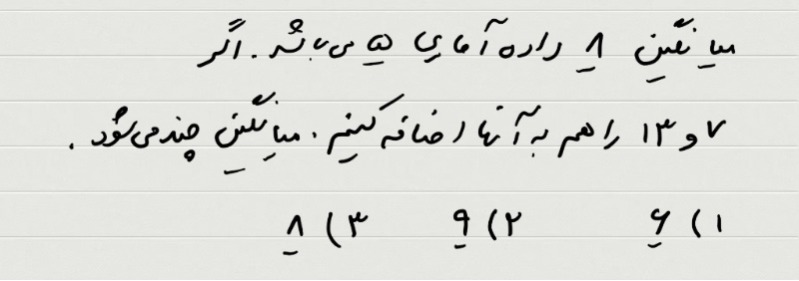 میانگین ۸ داده آماری ۵ می باشد. اگر
۷ و ۱۳ را هم به آنها اضافه کنیم. میانگین چند می شود.
۱) ۶ ۲) ۹ ۳) ۸